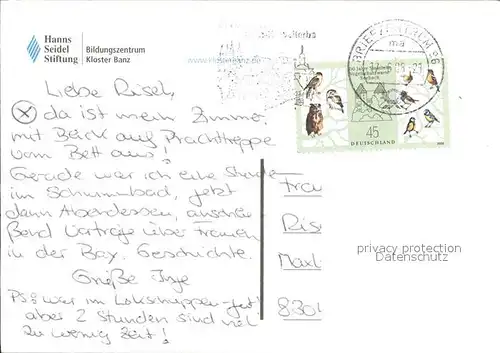 Hanns
Seidel
Stiftung
Bildungszentrum
Kloster Banz
BRIEFZENTRUM 96
ma
45
DEUTSCHLAND
2008
Liebe Risel,
da ist mein Zimmer
mit Blick auf Prachttreppe
vom Bett aus!
Gerade war ich eine Stunde
im Schwimmbad, jetzt
dann Abendessen, anschließ
Bend Vorträge über Frauen
in der Bay. Geschichte.
Grüße Inge
PS: war im Lokschuppen
aber 2 Stunden sind viel
zu wenig Zeit!
Frau
Ris
Maxl
830
privacy protection
Datenschutz